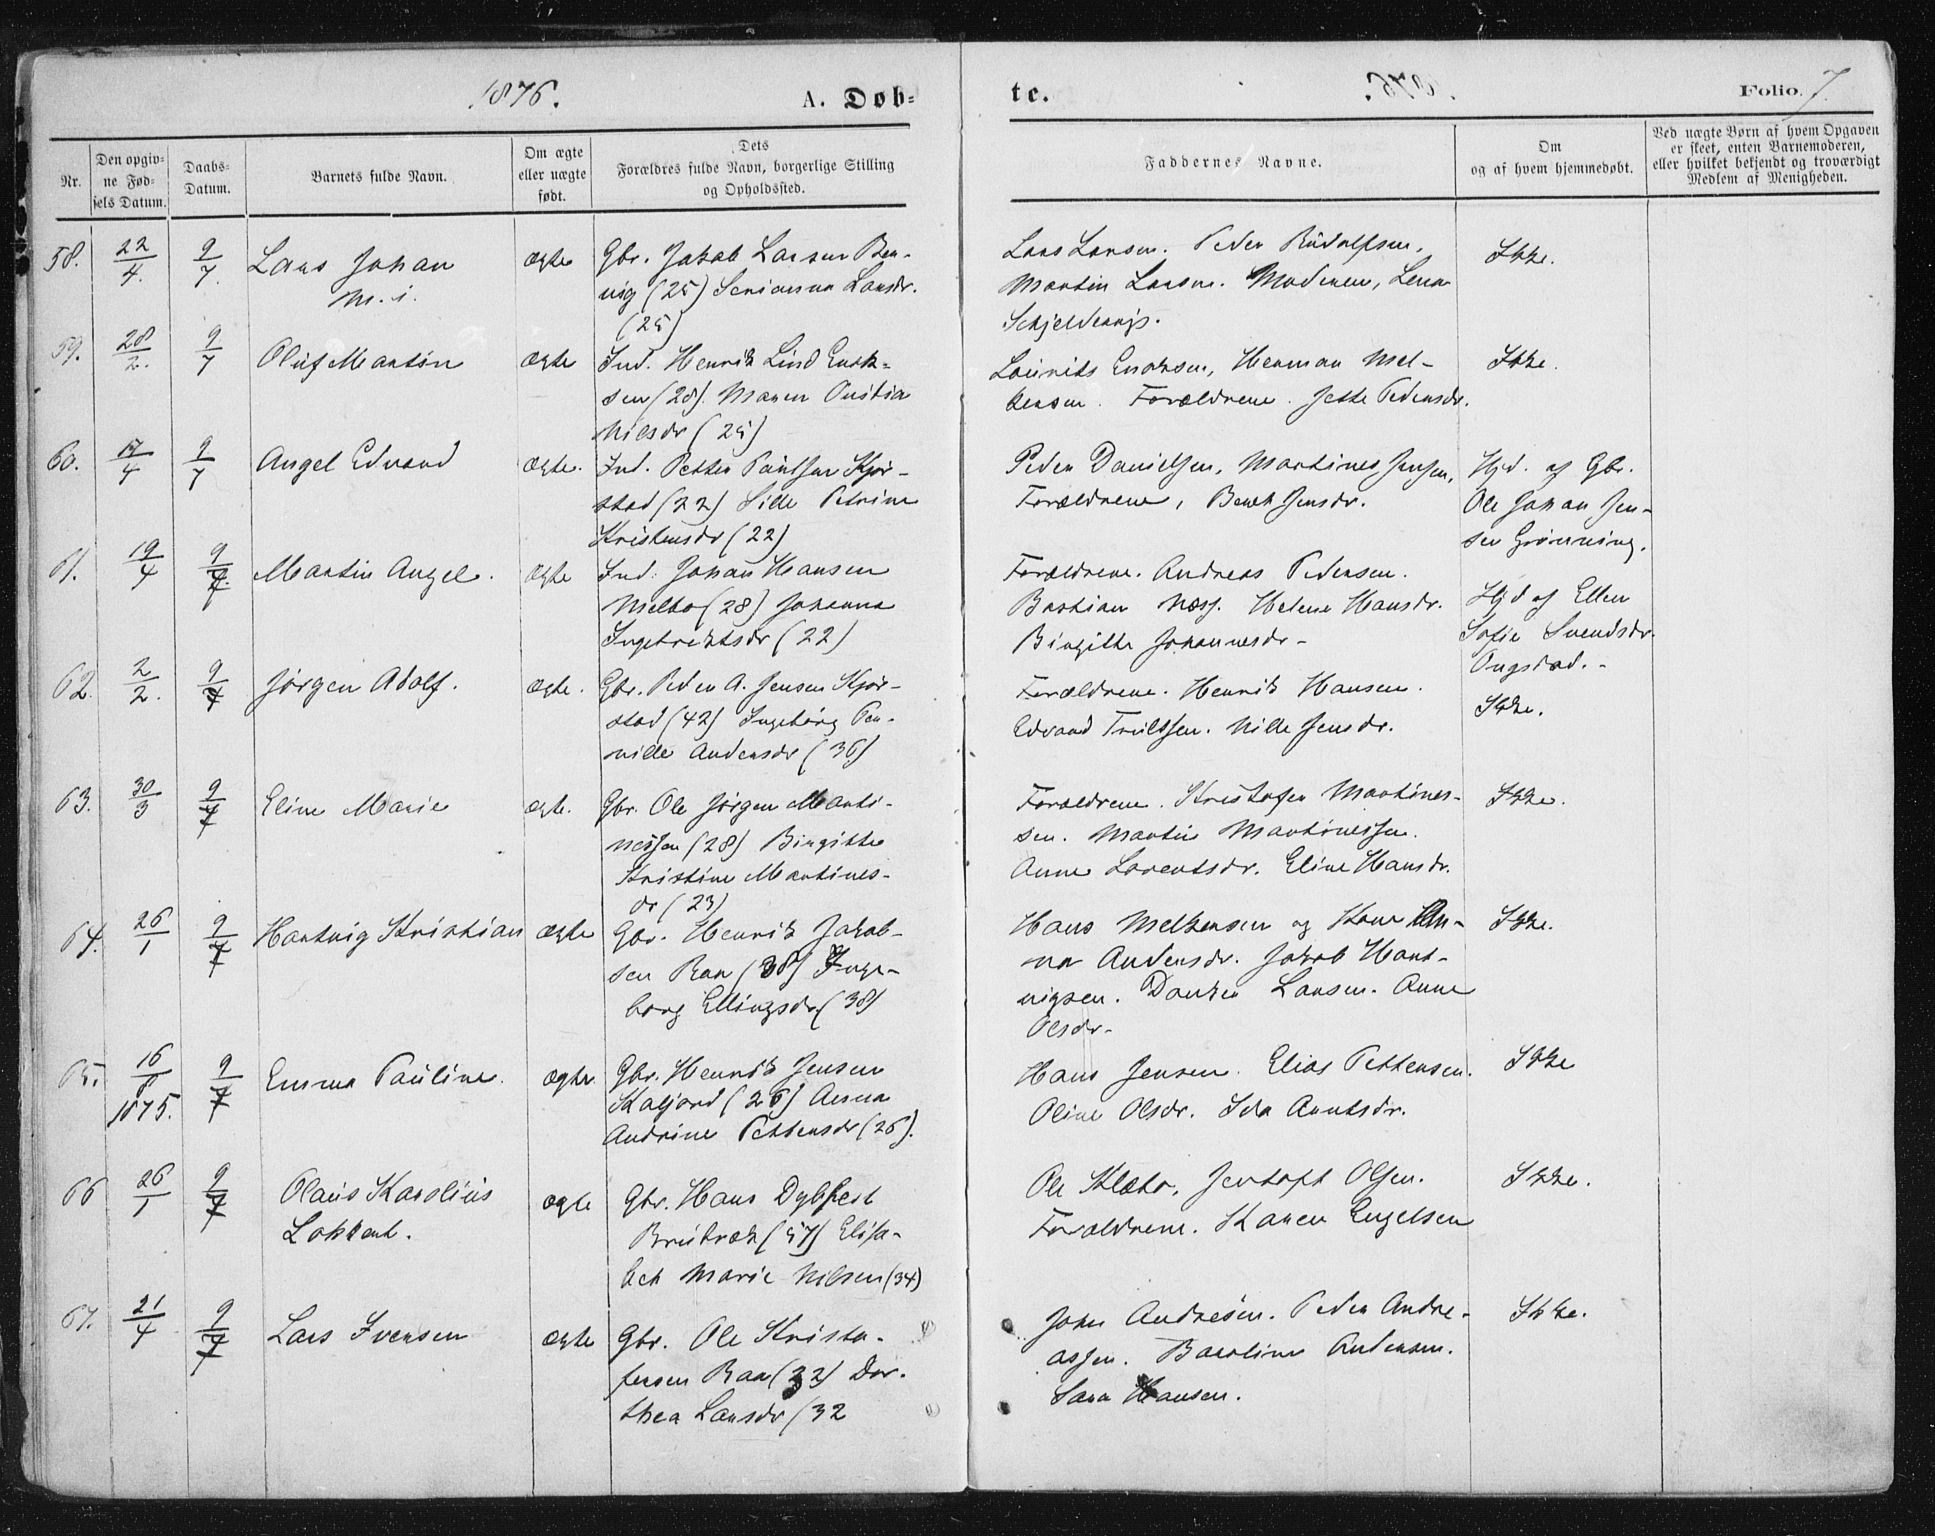 1876. A. Døb=
te. Folio. 7.
Nr.
Den opgiv=
ne Fød=
sels Datum.
Daabs=
Datum.
Barnets fulde Navn.
Om ægte
eller uægte
født.
Dets
Forældres fulde Navn, borgerlige Stilling
og Opholdssted.
Faddernes Navne.
Om
og af hvem hjemmedøbt.
Ved uægte Børn af hvem Opgaven
er skeet, enten Barnemoderen,
eller hvilket bekjendt og troværdigt
Medlem af Menigheden.
58. 22/4. 9/7. Lars Johan ægte Gbr. Jakob Larsen
(25) Larsdr.
(25)
Lars Larsen. Peder Rudolfsen, Ikke.
Martin Larsen. Moderen, Lena
59. 28/2. 9/7 Oluf Martin ægte Ind. Henrik Lind
sen (28). Maren
Nilsdr (25)
Laurits Enoksen, Herman Mel- Ikke.
kersen. Forældrene. Jette Pedersdr.
60. 17/4 9/7 Angel Edvard ægte. Ind. Petter Paulsen Kjør-
stad (22) Sille Petrine
Kristensdr (22)
Peder Danielsen, Martines Jensen, Hjd. af Gbr.
Forældrene, Jensdr. Ole Johan Jen-
sen Grønning.
61. 19/4 9/7. Martin Angel. ægte Ind. Johan Hansen
Melbo (28) Johanna
Ingebriktsdr (22)
Forældrene. Andreas Pedersen.
Bastian Næss. Helene Hansdr. Hjd af Ellen
Birgitte Johannesdr- Sofie Svendsdr.
Ongstad.-
62. 2/2. 9/7 Jørgen Adolf. ægte. Gbr. Peder A. Jensen Kjør-
stad (42) Ingeborg Per-
nille Andersdr (36)
Forældrene. Henrik Hansen. Ikke.
Edvard Trulssen. Nille Jensdr.
63. 30/3 9/7 Eline Marie ægte. Gbr. Ole Jørgen Marti-
nessen (28) Birgitte
Kristine Martines-
dr (23)
Forældrene. Kristofer Martines- Ikke.
sen. Martin Martinessen.
Anne Lorentsdr. Eline Hansdr.
64. 26/1 9/7 Hartvig Kristian ægte Gbr. Henrik Jakob-
sen Raa (38) Inge-
borg Ellingsdr (38)
Hans Melkersen og Kone An- Ikke.
na Andersdr. Jakob Hart-
vigsen. Larsen. Anne
Olsdr-
65. 16/8 1875. 9/7 Emma Pauline. ægte Gbr. Henrik Jensen
Kaljord (26) Anna
Andrine Pettersdr (26).
Hans Jensen. Elias Pettersen. Ikke
Oline Olsdr. Ida Arntsdr.
66 26/1 9/7 Olaus Karolius ægte Gbr. Hans Dybfest
Lokkert. (57) Elisa-
bet Marie Nilsen (34)
Ole Klæbo, Jertoft Olsen. Ikke.
Forældrene. Karen Engelsen
67. 21/4 9/7 Lars Iversen ægte Gbr. Ole Kristo-
fersen Raa (32) Dor-
thea Larsdr (32
John Andresen. Peder Andre- Ikke.
assen. Andersen.
Sara Hansen.